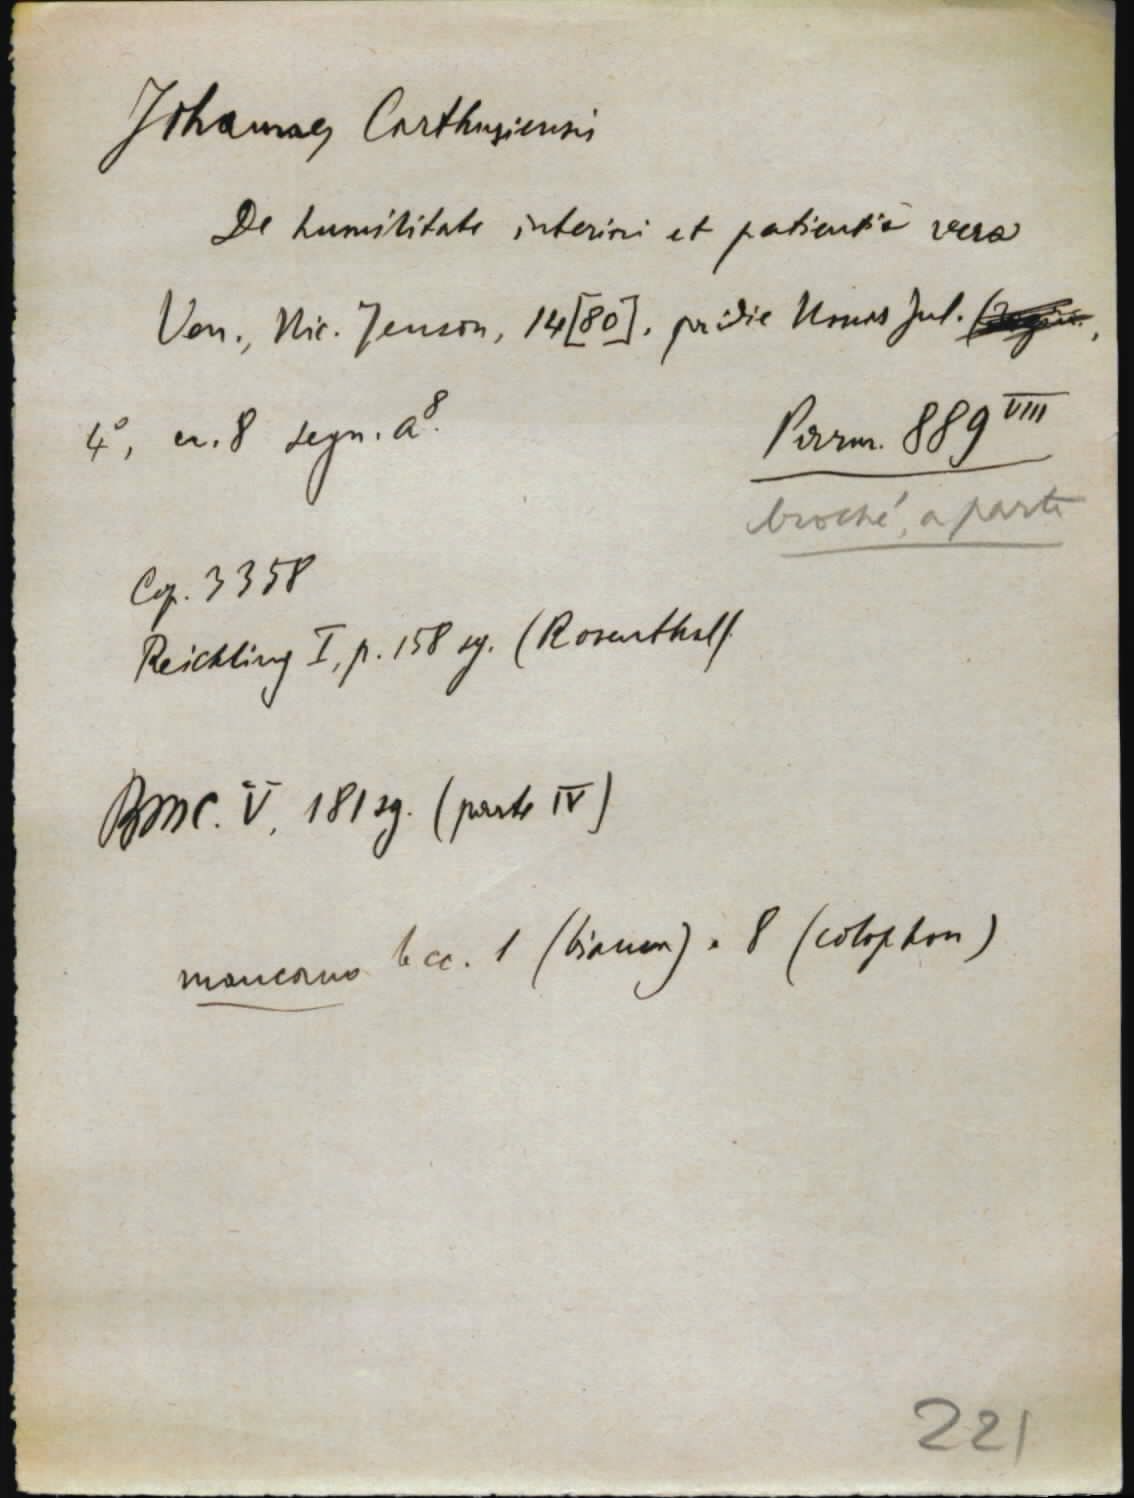 Johannes Carthusiensis
De humilitate interiori et patientia vera
Ven., Nic. Jenson, 14[80], pridie Nonas Jul.
4°, cc. 8 segn. a⁸.
Parm. 889 VIII
broché, a parte
Cop. 3358
Reichling I, p. 158 sg. (Rosenthal).
BMC. V, 181 sg. (parte IV)
mancano le cc. 1 (bianca) e 8 (colophon)
221